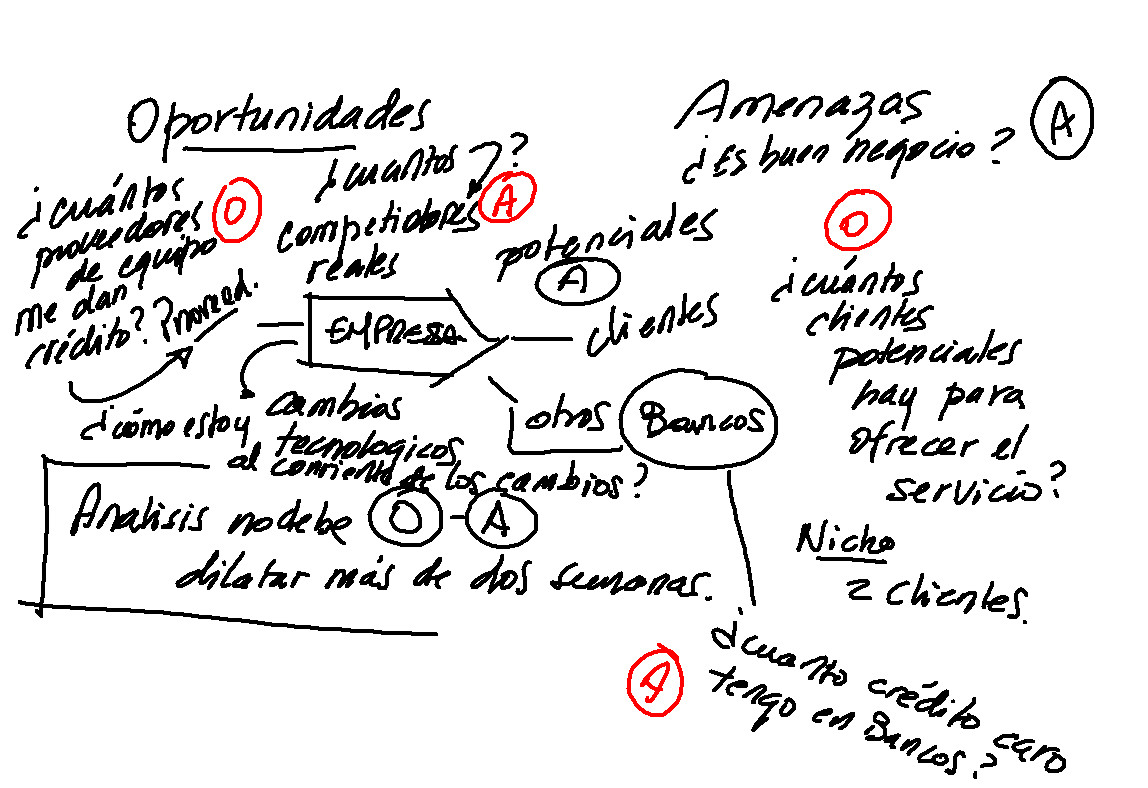 Oportunidades
Amenazas
A
¿Es buen negocio?
¿cuántos
proveedores
de equipo
me dan
crédito?
O
¿cuantos ?
competidores
reales
A
potenciales
A
O
¿cuántos
clientes
potenciales
hay para
ofrecer el
servicio?
Nicho
2 clientes.
Proveed.
EMPRESA
clientes
otros
Bancos
cambios
tecnologicos
¿cómo estoy
al corriente de los cambios?
Analisis no debe O - A
dilatar más de dos semanas.
A
¿cuanto crédito caro
tengo en Bancos?